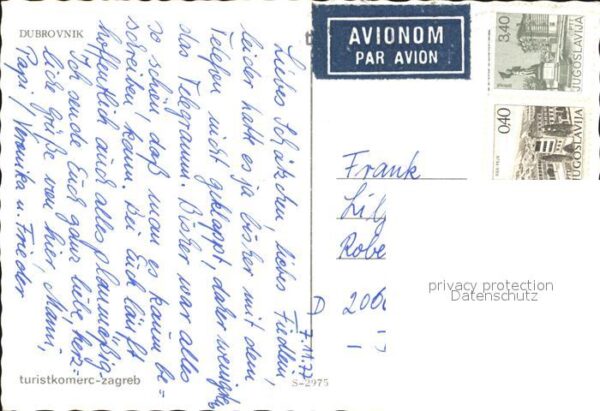 DUBROVNIK
AVIONOM
PAR AVION
3,40
PTT
JUGOSLAVIJA
0,40
JUGOSLAVIJA
7.11.77
Liebes Schätzchen, liebes Friedlein,
leider hatte es ja bisher mit dem
Telefon nicht geklappt, daher wenigstens
das Telegramm. Bisher war alles
so schön, daß man es kaum be-
schreiben kann. Bei Euch läuft
hoffentlich auch alles planmäßig.
Ich sende Euch ganz liebe herz-
liche Grüße von hier, Mami,
Papi, Veronika u. Frieder
Frank
Lil
Robe
D 2000
privacy protection
Datenschutz
turistkomerc-zagreb
S-2975